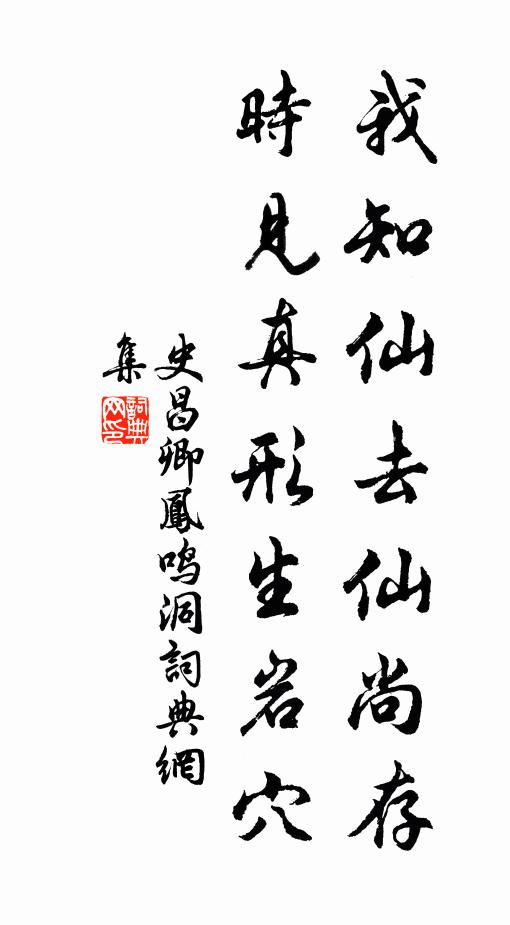 我知仙去仙尚存
時見真形生岩穴
史昌卿鳳鳴洞詞典網
集
詞典網印